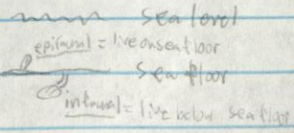 sea level
epifaunal = live on seafloor
sea floor
infaunal = live below sea floor